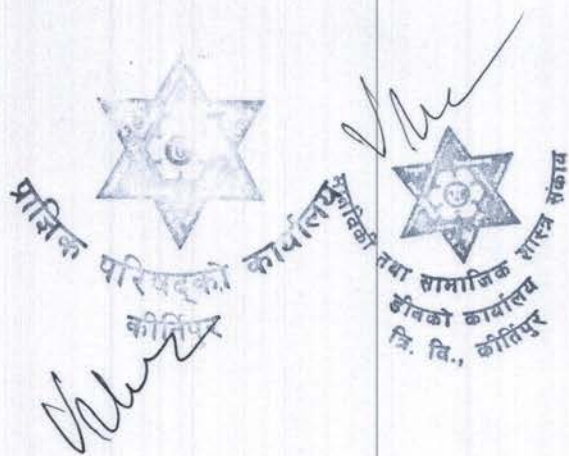 प्राज्ञिक परिषद्को कार्यालय
कीर्तिपुर
तथा सामाजिक शास्त्र संकाय
डीनको कार्यालय
त्रि. वि., कीर्तिपुर